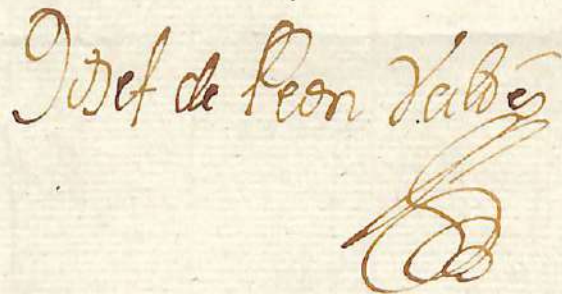 Josef de Peon Valdés